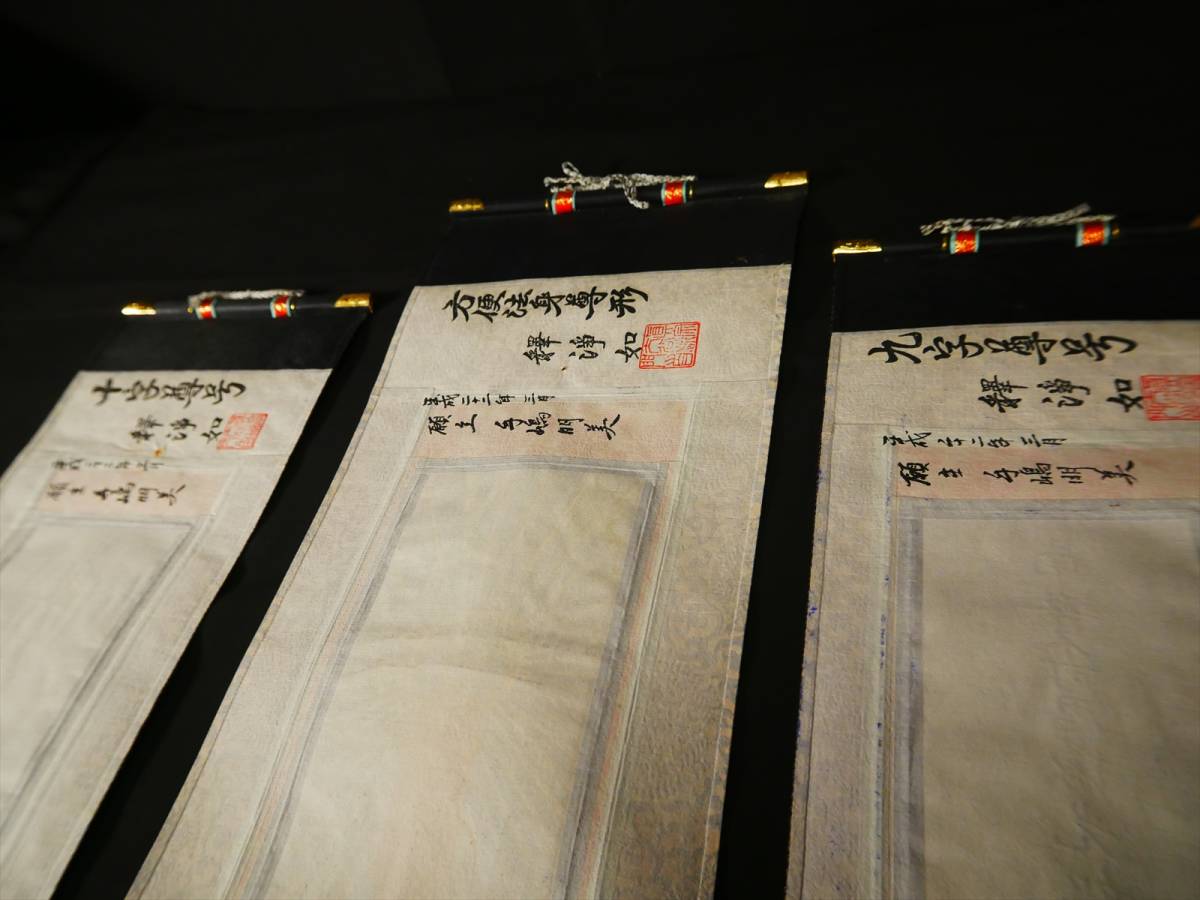 十字尊号
釋淨如
平成二十二年三月
願主 手嶋明美
方便法身尊形
釋淨如
平成二十二年三月
願主 手嶋明美
九字尊号
釋淨如
平成二十二年三月
願主 手嶋明美